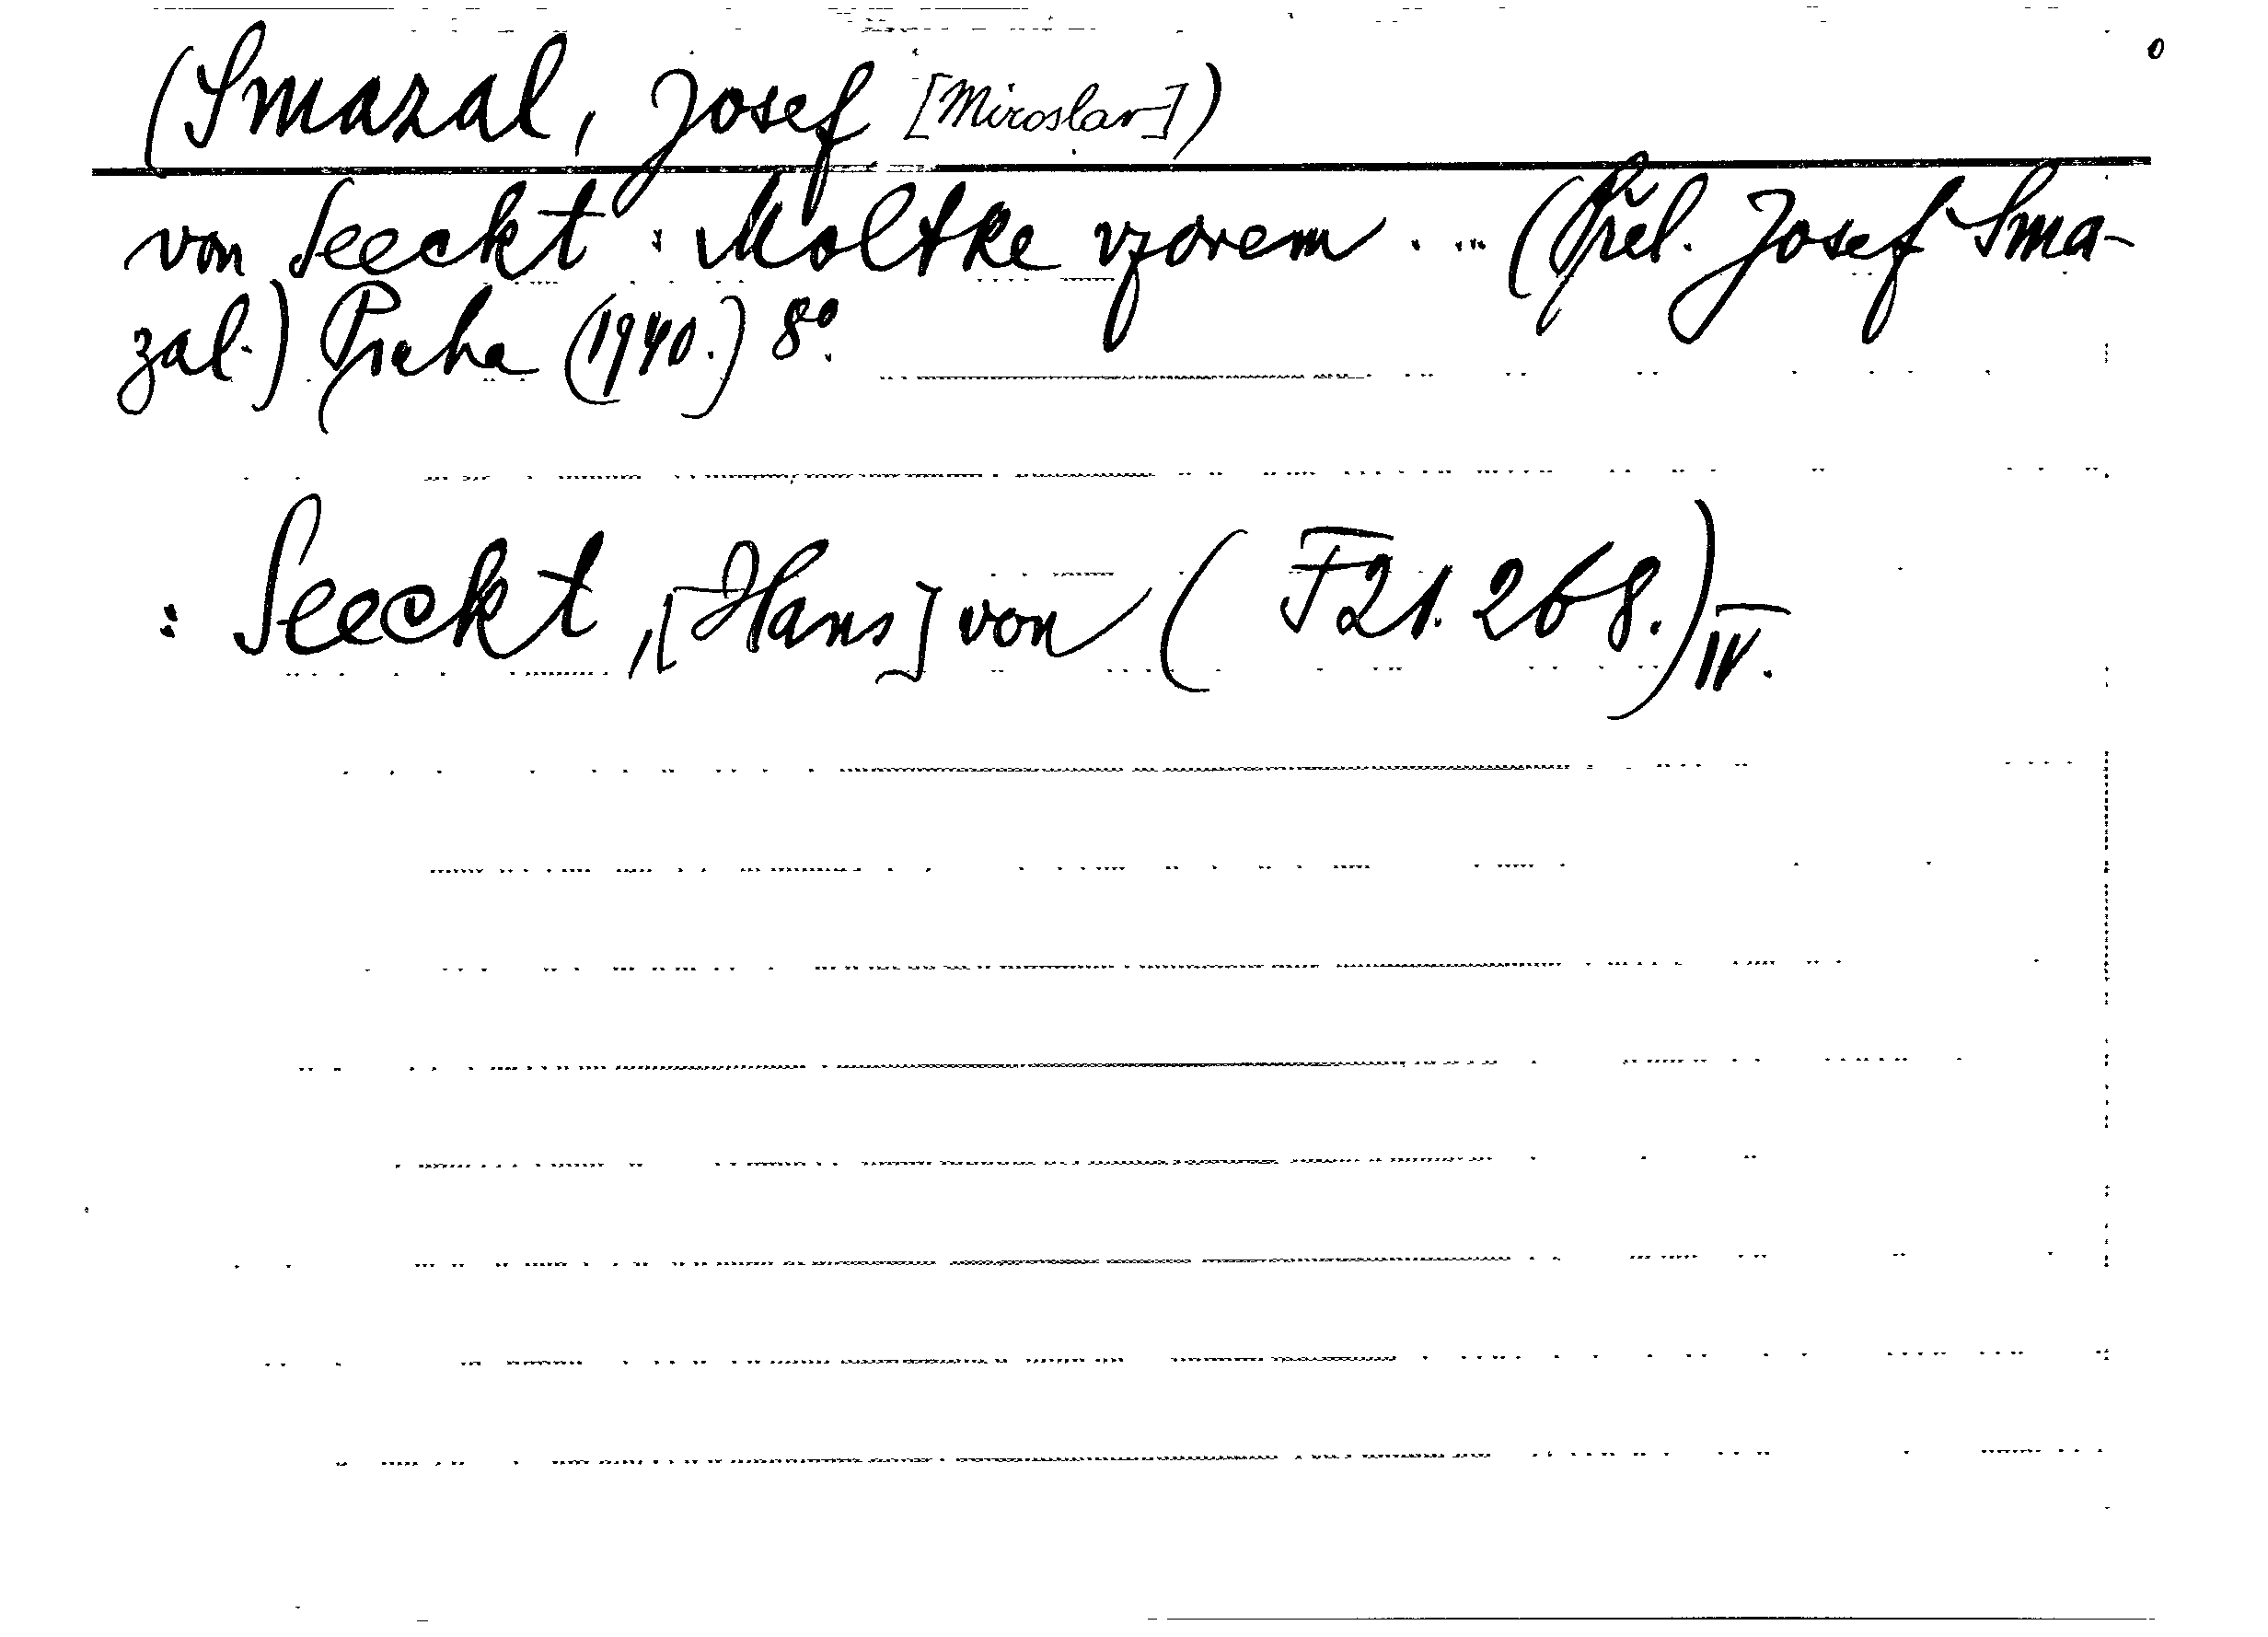 (Smazal, Josef [Miroslav])
von Seeckt: Moltke vzorem. ... (Přel. Josef Sma-
zal.) Praha (1940.) 8°.
: Seeckt, [Hans] von (F 21.268.) IV.